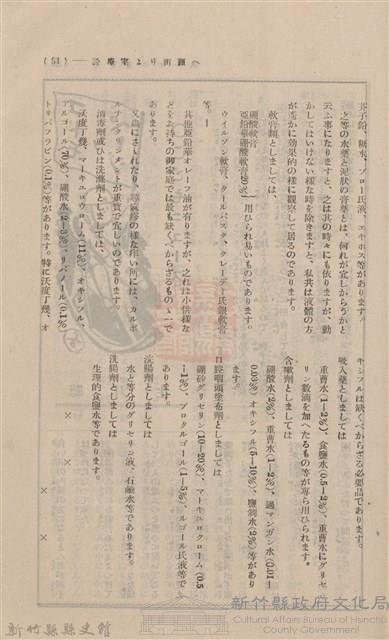 (51)——診療室より街頭へ
芥子鉛、糊水、ブロー氏液、エキホス等があります。
之等の水藥と泥狀の膏藥とは、何れが宜しからうかと
云ふ事になりますと、之は其の時々にも依りますが、動
かしてはいけない樣な時を除きますと、私共は液體の方
が遙かに効果的の樣に觀察して居るのであります。
軟膏類としましては、
硼酸軟膏
亞鉛華硼酸軟膏 用ひられ易いものであります
ウイルソン軟膏、クールパスタ、クレーデー氏銀軟膏
等。
其他亞鉛華オレーフ油が有りますが、之れは小供樣な
どをお持ちの御家庭では最も缺くべからざるものゝ一で
あります。
又蟲にさされたり、蕁麻疹の樣な痒い所には、カルボ
ールチンクリニメントが重寶で宜しいのであります。
消毒劑或ひは洗滌劑としましては、
沃度丁幾、マーキユロクローム(1%)、オキシフル、
アルコール(70%)、硼酸水(2-3%)、リバノール(0.1%)
トリパフラビン(0.1%)等があります。特に沃度丁幾、オ
キシフルは缺くべからざる必要品であります。
吸入藥としましては
重曹水(1-2%)、食鹽水(0.5-2%)、重曹水にグリセ
リン數滴を加へたるもの等が專ら用ひられます。
含嗽劑としましては
硼酸水(2%)、重曹水(1-2%)、過マンガン水(0.01-
0.03%)オキシフル(5-10%)、鹽剝水(2%)等があり
ます。
口腔咽頭塗布劑としましては
硼砂グリセリン(10-20%)、マーキユロクローム(0.5
-1%)、プロタルゴール(1-5%)、ルゴール氏液等で
あります。
浣腸劑としましては
水と等分のグリセリン液、石鹼水等であります。
洗腸劑としましては
生理的食鹽水等であります。
× × × ×
新竹縣縣史館
新竹縣政府文化局
Cultural Affairs Bureau of Hsinchu
County Government